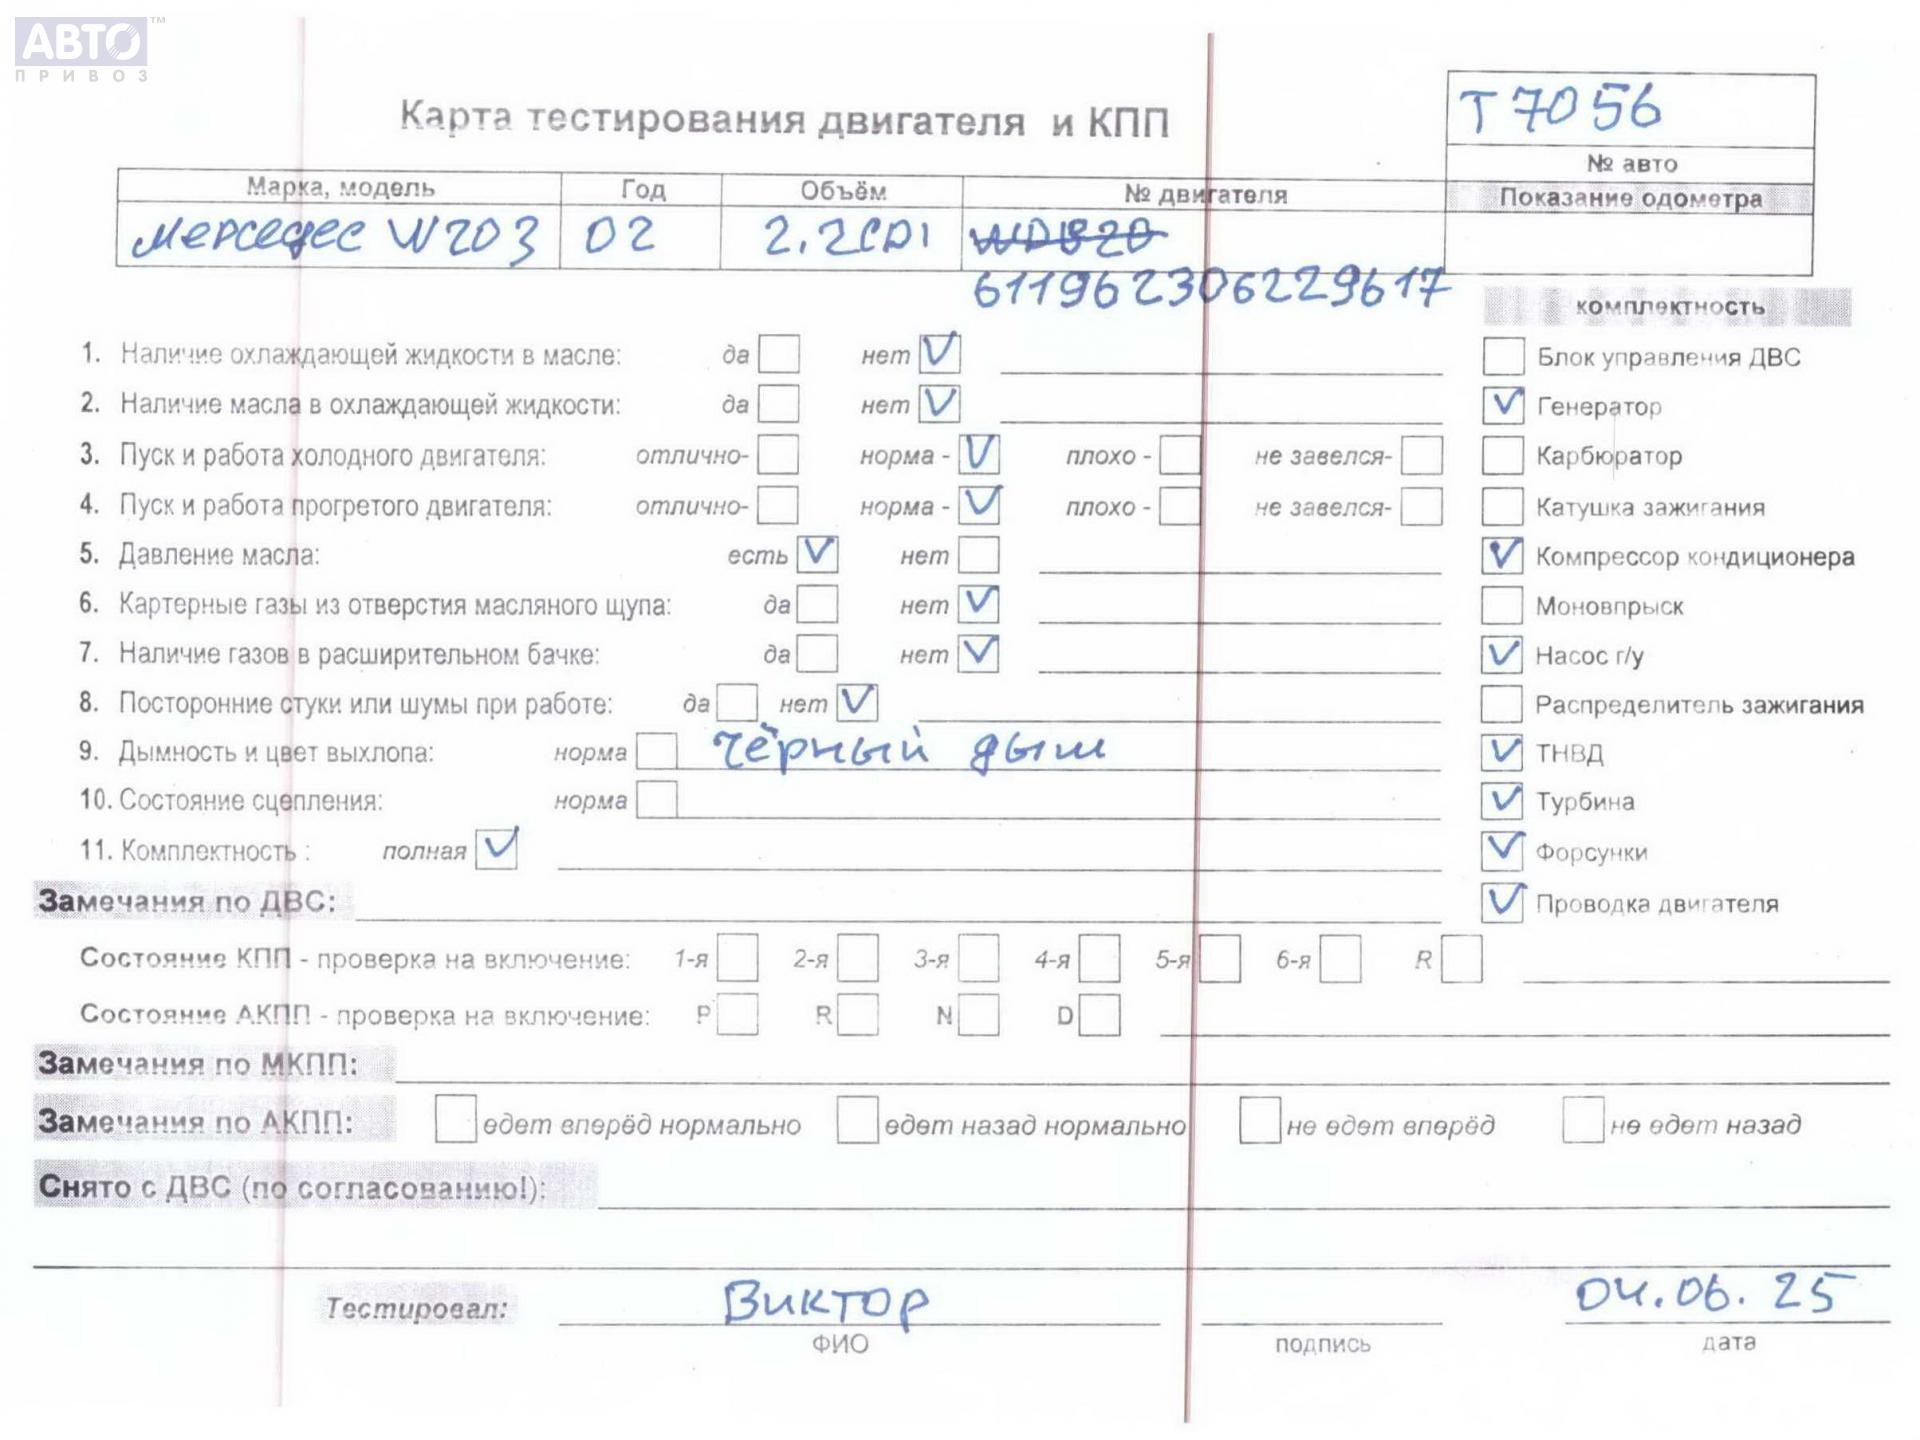 АВТО™
ПРИВОЗ
Карта тестирования двигателя и КПП
Т 7056
№ авто
Марка, модель Год Объём № двигателя Показание одометра
Мерседес W203 02 2.2CDI WDB20
61196230622961​7
комплектность
1. Наличие охлаждающей жидкости в масле: да нет ✓ Блок управления ДВС
2. Наличие масла в охлаждающей жидкости: да нет ✓ ✓ Генератор
3. Пуск и работа холодного двигателя: отлично- норма - ✓ плохо - не завелся- Карбюратор
4. Пуск и работа прогретого двигателя: отлично- норма - ✓ плохо - не завелся- Катушка зажигания
5. Давление масла: есть ✓ нет ✓ Компрессор кондиционера
6. Картерные газы из отверстия масляного щупа: да нет ✓ Моновпрыск
7. Наличие газов в расширительном бачке: да нет ✓ ✓ Насос г/у
8. Посторонние стуки или шумы при работе: да нет ✓ Распределитель зажигания
9. Дымность и цвет выхлопа: норма чёрный дым ✓ ТНВД
10. Состояние сцепления: норма ✓ Турбина
11. Комплектность : полная ✓ ✓ Форсунки
Замечания по ДВС: ✓ Проводка двигателя
Состояние КПП - проверка на включение: 1-я 2-я 3-я 4-я 5-я 6-я R
Состояние АКПП - проверка на включение: P R N D
Замечания по МКПП:
Замечания по АКПП: едет вперёд нормально едет назад нормально не едет вперёд не едет назад
Снято с ДВС (по согласованию!):
Тестировал: Виктор 04.06.25
ФИО подпись дата